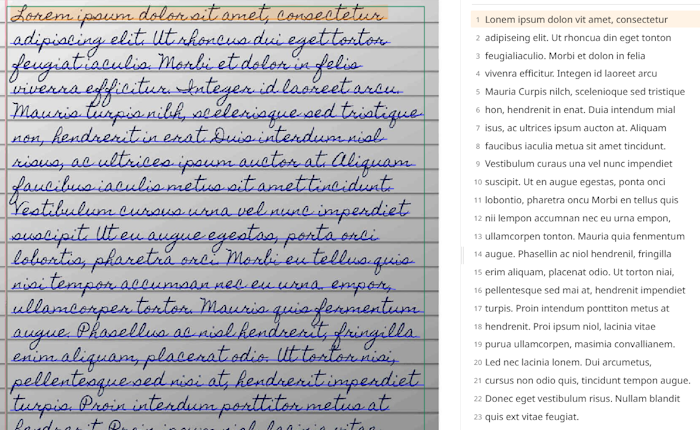 Lorem ipsum dolor sit amet, consectetur
adipiscing elit. Ut rhoncus dui eget tortor
feugiat iaculis. Morbi et dolor in felis
viverra efficitur. Integer id laoreet arcu.
Mauris turpis nibh, scelerisque sed tristique
non, hendrerit in erat. Duis interdum nisl
risus, ac ultrices ipsum auctor at. Aliquam
faucibus iaculis metus sit amet tincidunt.
Vestibulum cursus urna vel nunc imperdiet
suscipit. Ut eu augue egestas, porta orci
lobortis, pharetra orci. Morbi eu tellus quis
nisi tempor accumsan nec eu urna. empor,
ullamcorper tortor. Mauris quis fermentum
augue. Phasellus ac nisl hendrerit, fringilla
enim aliquam, placerat odio. Ut tortor nisi,
pellentesque sed nisi at, hendrerit imperdiet
turpis. Proin interdum porttitor metus at
1 Lorem ipsum dolon vit amet, consectetur
2 adipiseing elit. Ut rhoncua din eget tonton
3 feugialiaculio. Morbi et dolon in felia
4 vivenra efficitur. Integen id laoreet arcu
5 Mauria Curpis nilch, scelenioque sed tristique
6 hon, hendrenit in enat. Duia intendum mial
7 isus, ac ultrices ipsum aucton at. Aliquam
8 faucibus iaculia metua sit amet tincidunt.
9 Vestibulum curaus una vel nunc impendiet
10 suscipit. Ut en augue egestas, ponta onci
11 lobontio, pharetra oncu Morbi en tellus quis
12 nii lempon accumnan nec eu urna empon,
13 ullamconpen tonton. Mauria quia fenmentum
14 augue. Phasellin ac niol hendrenil, fringilla
15 erim aliquam, placenat odio. Ut tonton niai,
16 pellentesque sed mai at, hendrenit impendiet
17 turpis. Proin intendum ponttiton metus at
18 hendrenit. Proi ipsum niol, lacinia vitae
19 purua ullamconpen, masimia convallianem.
20 Led nec lacinia lonem. Dui arcumetus,
21 cursus non odio quis, tincidunt tempon augue.
22 Donec eget vestibulum risus. Nullam blandit
23 quis ext vitae feugiat.